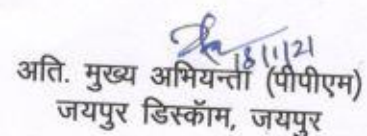 18/1/21
अति. मुख्य अभियन्ता (पीपीएम)
जयपुर डिस्कॉम, जयपुर